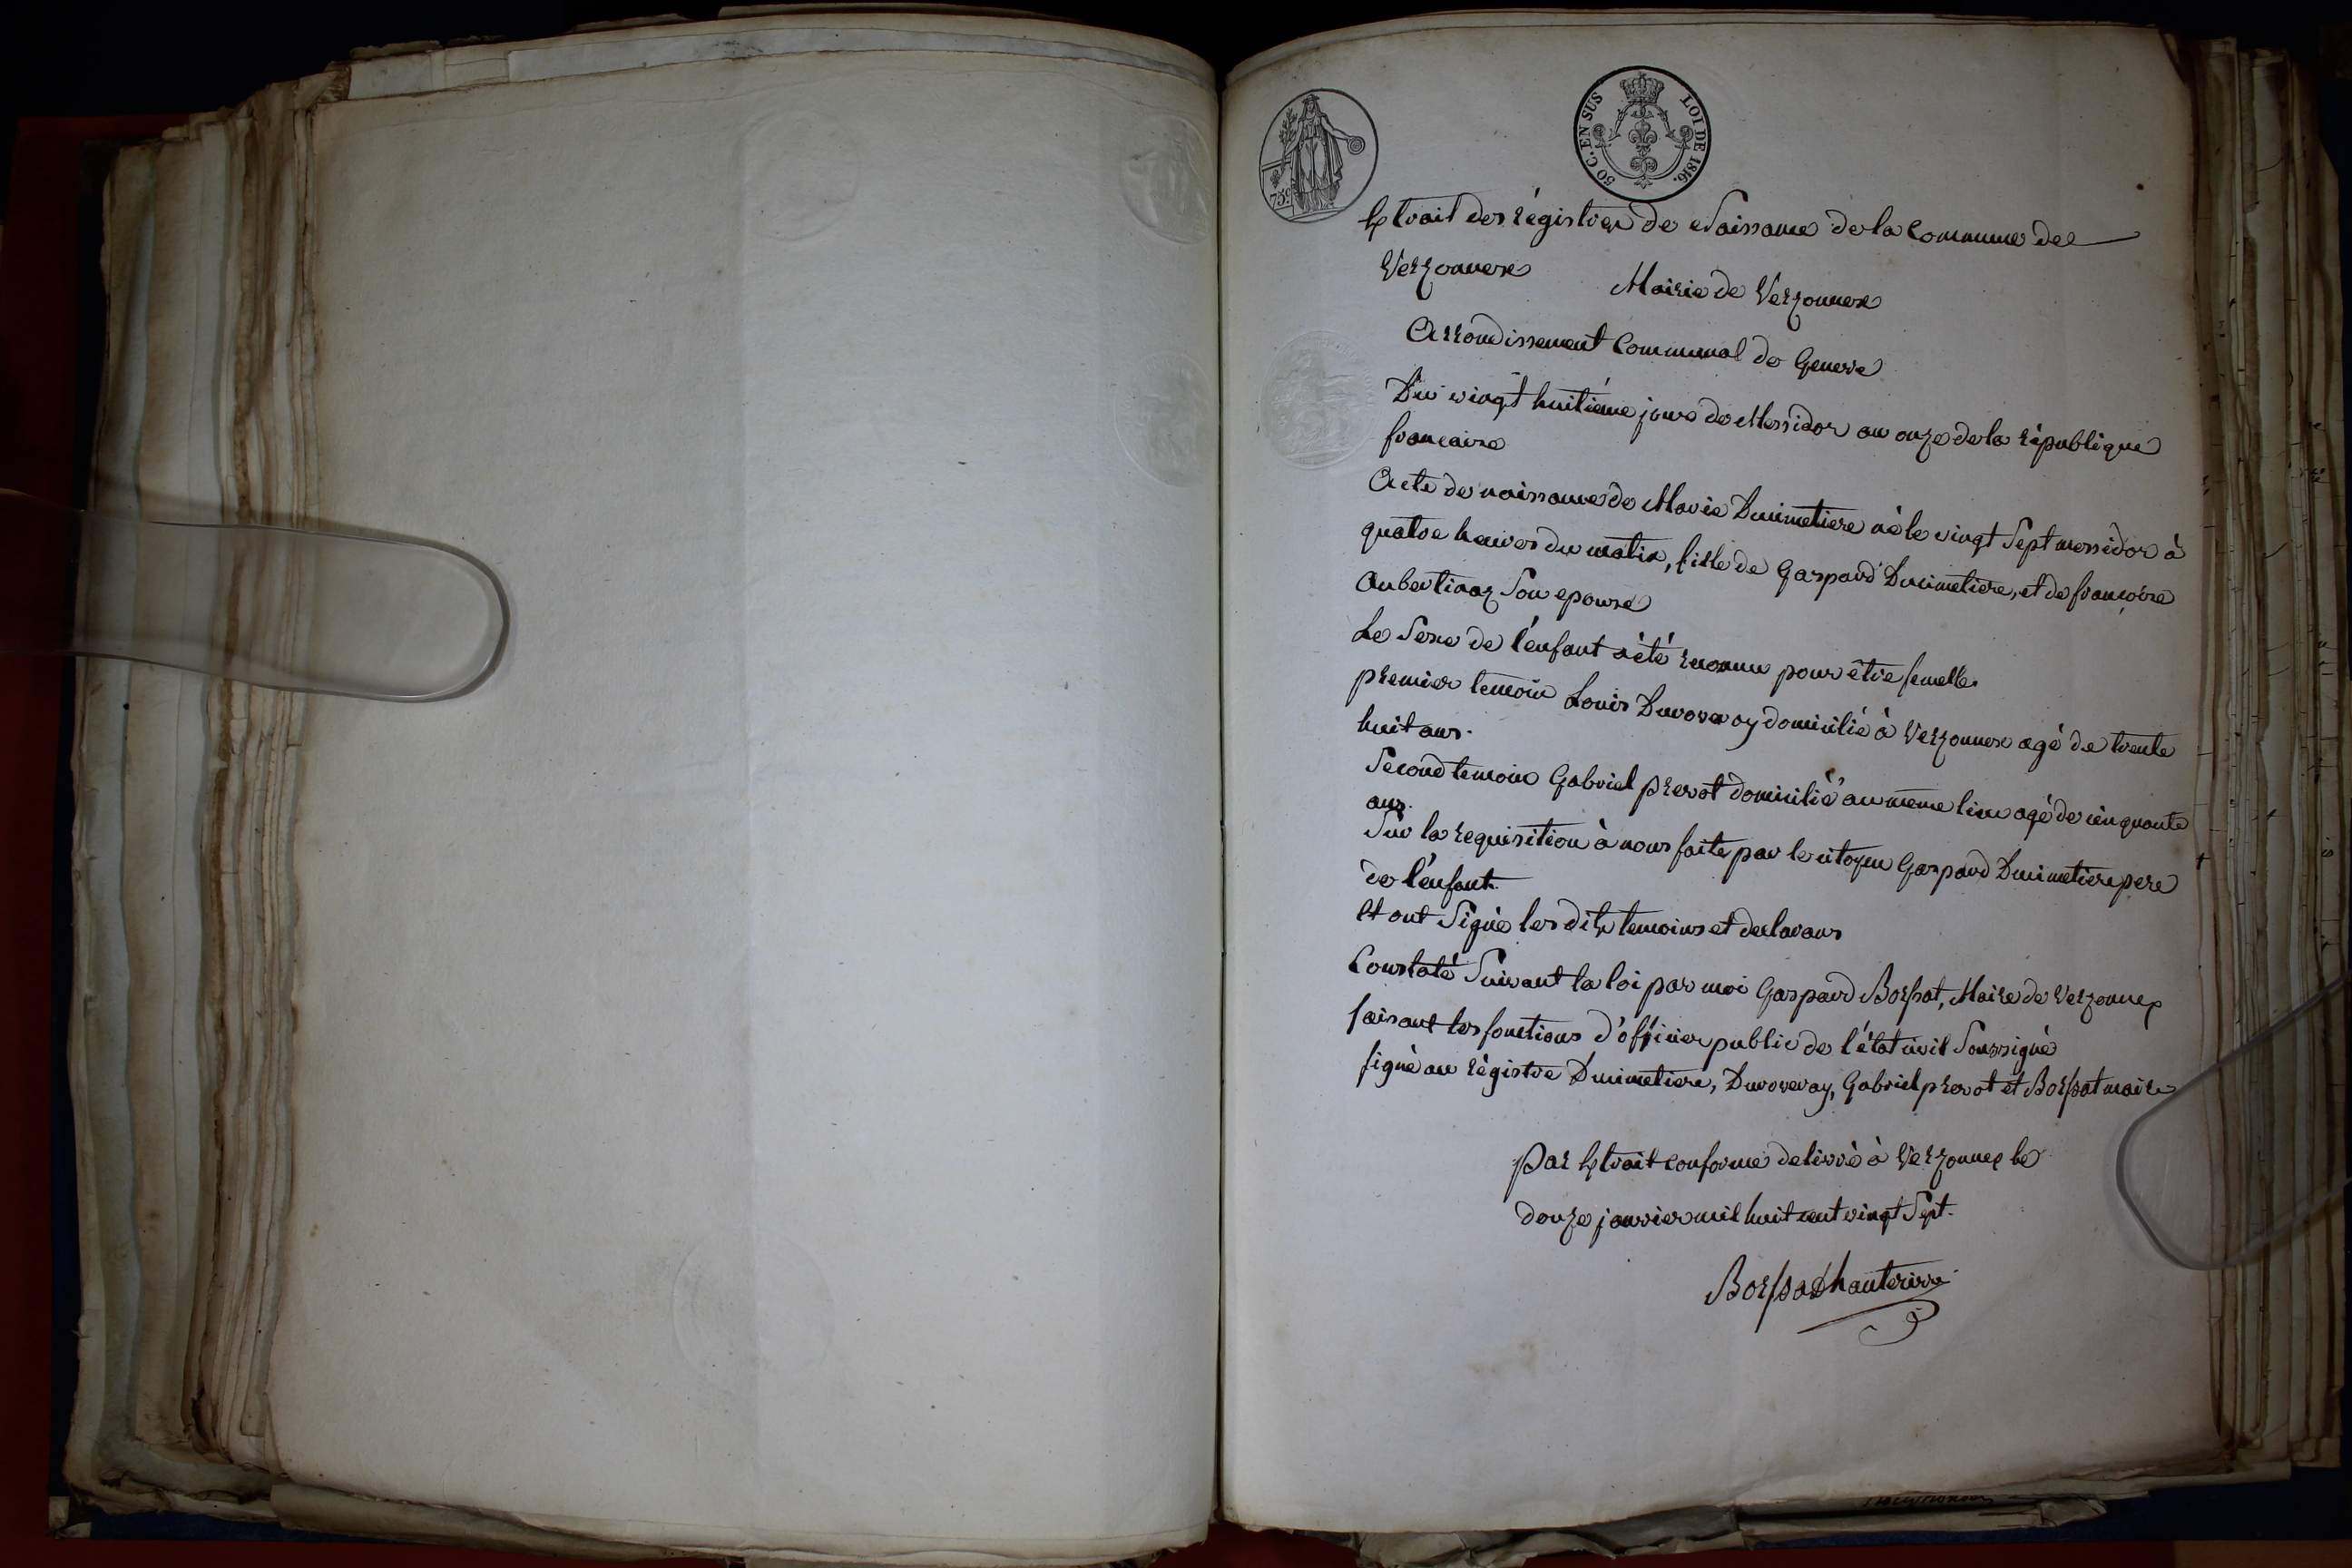 50 C. EN SUS LOI DE 1816.
75c
Extrait des régistres de Naissance de la Commune de
Versonnex Mairie de Versonnex
Arrondissement Communal de Geneve
Du vingt huitième jour de Messidor an onze de la république
francaise
Acte de naissance de Marie Ducimetiere né le vingt Sept messidor à
quatre heures du matin, fille de Gaspard Ducimetiere, et de francoise
Aubertinaz Son epouse
Le Sexe de l'énfant à été reconnu pour être femelle.
premier temoin Louis Duvoveray domicilié à Versonnex agé de trente
huit ans.
Second temoin Gabriel prevot domicilié au même lieu agé de cinquante
ans.
Sur la requisition à nous faite par le citoyen Gaspard Ducimetiere pere
de l'énfant.
Et ont Signé les dits temoins et declarans
Constaté Suivant la loi par moi Gaspard Borssat, Maire de Versonnex
faisant les fonctions d'officier public de l'état civil Soussigné
signé au régistre Ducimetiere, Duvoveray, Gabriel prevot et Borssat maire
par Extrait conforme delivré à Versonnex le
douze janvier mil huit cent vingt Sept.
Borssat d'hauterive